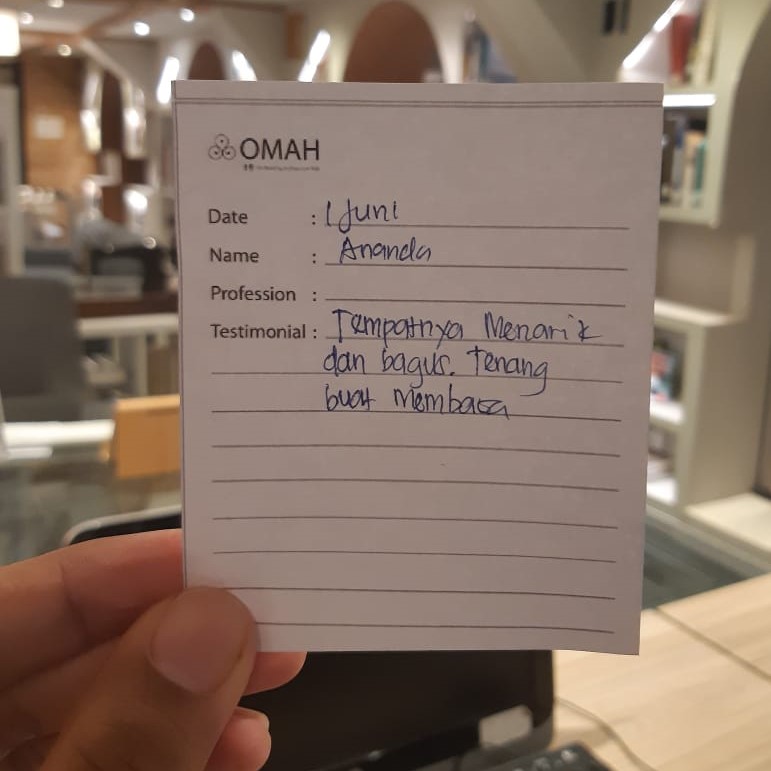 OMAH
Date : 1 Juni
Name : Ananda
Profession :
Testimonial : Tempatnya Menarik
dan bagus. Tenang
buat Membaca